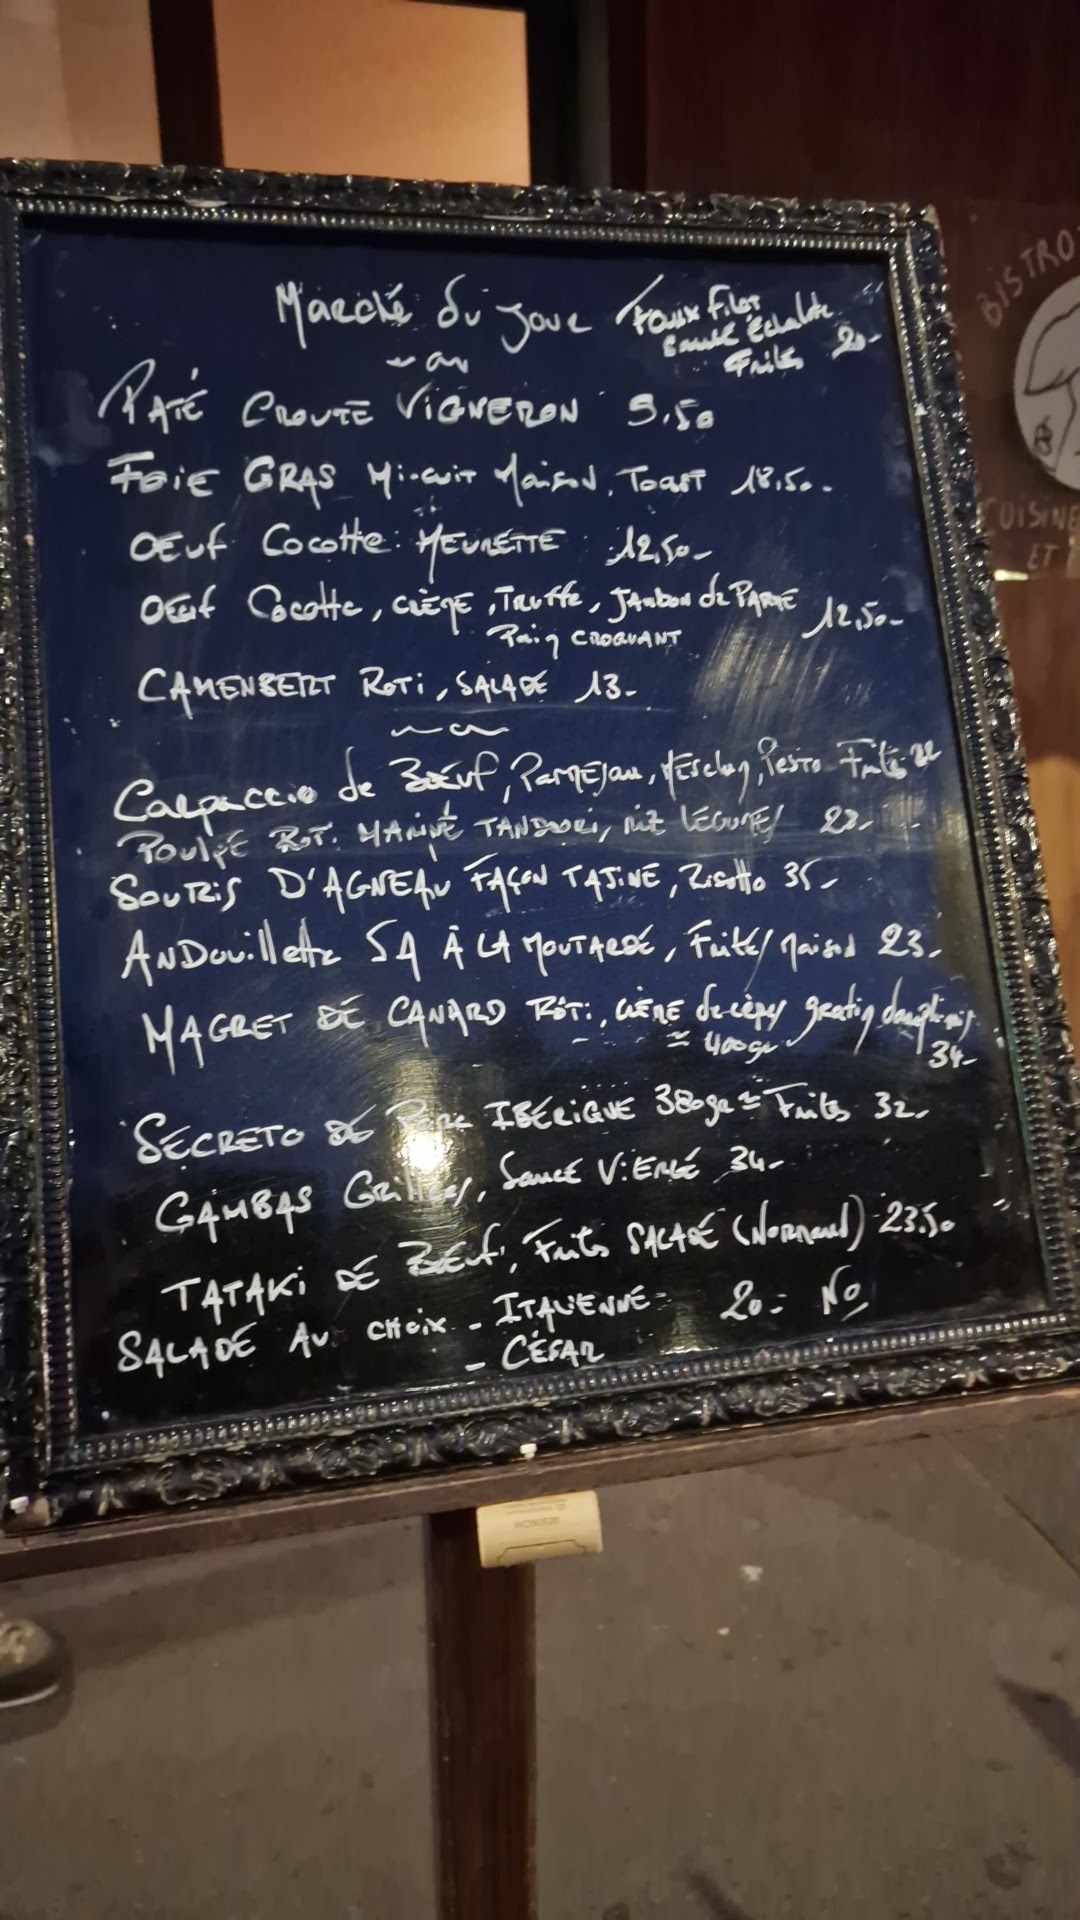 Marché du jour
Faux Filet
Sauce Échalote
Frites 20-
PATÉ CROUTE VIGNERON 9,50
FOIE GRAS Mi-cuit Maison, TOAST 18,50-
OEuf Cocotte MEURETTE 12,50-
OEuf Cocotte, CRÈME, TRUFFE, JAMBON de PARME 12,50-
Pain CROQUANT
CAMEMBERT ROTI, SALADE 13-
Carpaccio de BOEUF, PARMEJAN, MESCLUN, PESTO Frites 22
POULPE ROTI MARINÉ TANDOORI, RIZ LÉGUMES 23-
SOURIS D'AGNEAU FAÇON TAJINE, Risotto 35-
ANDOUILLETTE 5A À LA MOUTARDE, Frites Maison 23-
MAGRET DE CANARD RÔTI, CRÈME de cèpes gratin dauphinois
≈ 400gr 34-
SECRETO DE PORC IBÉRIQUE 380gr ≈ Frites 32-
GAMBAS Grillées, Sauce VIERGE 34-
TATAKI DE BOEUF, Frites SALADE (Normand) 23,50
SALADE AU CHOIX - ITALIENNE 20-
- CÉSAR
BISTRO
CUISINE
ET